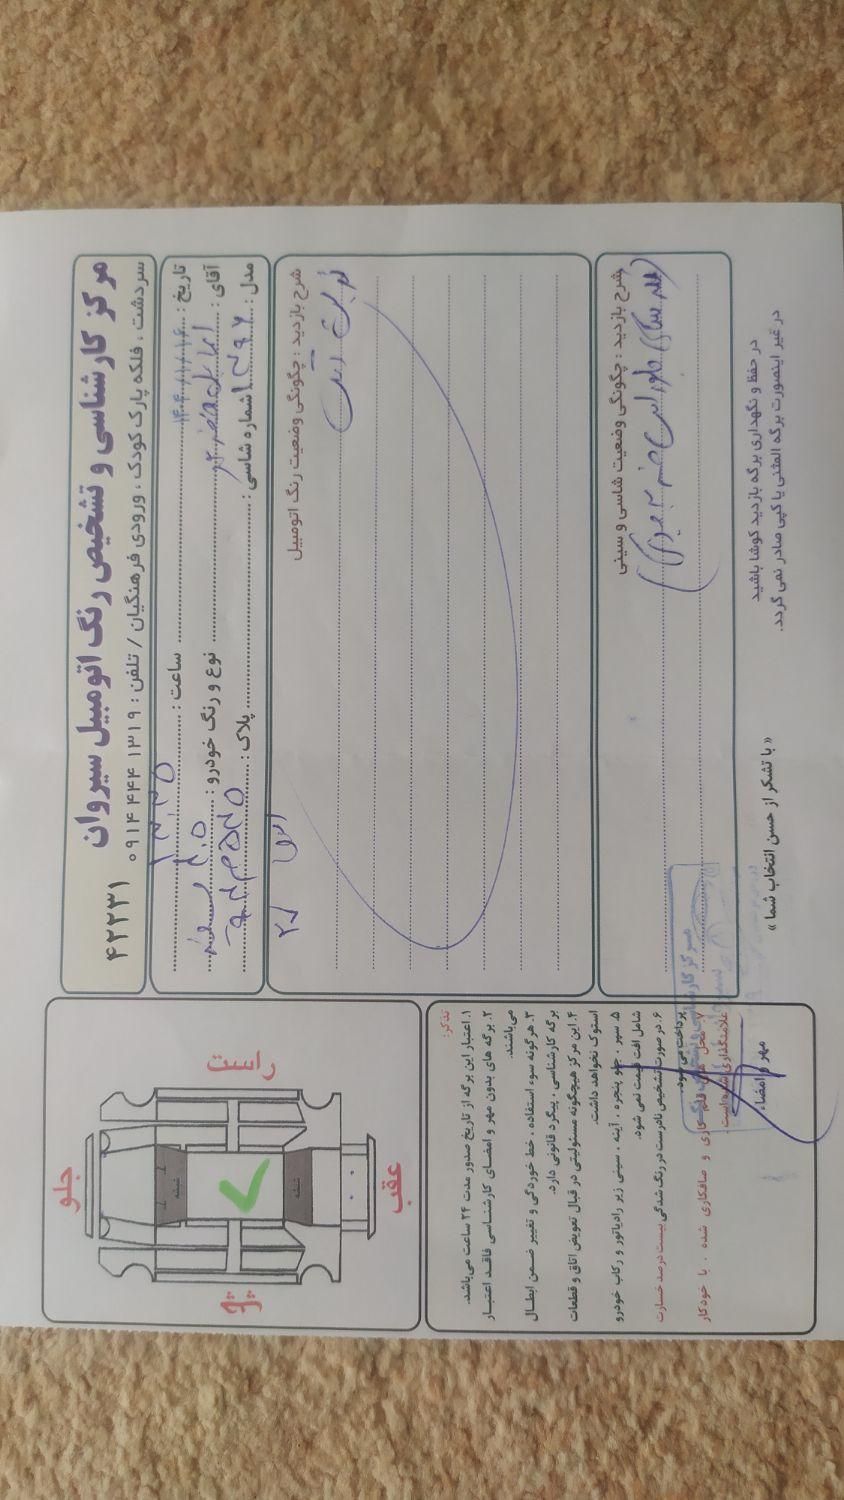 مرکز کارشناسی و تشخیص رنگ اتومبیل سیروان
سردشت ، فلکه پارک کودک ، ورودی فرهنگیان / تلفن : ۱۳۱۹ ۴۴۴ ۰۹۱۴
۴۲۲۳۱
تاریخ : ساعت :
آقای : نوع و رنگ خودرو :
مدل : ۱۳۹۷ شماره شاسی : پلاک :
شرح بازدید : چگونگی وضعیت رنگ اتومبیل
شرح بازدید : چگونگی وضعیت شاسی و سینی
در حفظ و نگهداری برگه بازدید کوشا باشید
در غیر اینصورت برگه المثنی یا کپی صادر نمی گردد.
« با تشکر از حسن انتخاب شما »
جلو
عقب
شیشه
شیشه
تذکر:
۱. اعتبار این برگه از تاریخ صدور مدت ۲۴ ساعت می‌باشد.
۲. برگه های بدون مهر و امضای کارشناسی فاقد اعتبار
می‌باشند.
۳. هرگونه سوء استفاده ، خط خوردگی و تغییر ضمن ابطال
برگه کارشناسی ، پیگرد قانونی دارد.
۴. این مرکز هیچگونه مسئولیتی در قبال تعویض اتاق و قطعات
استوک نخواهد داشت.
۵. سپر ، جلو پنجره ، آینه ، سینی زیر رادیاتور و رکاب خودرو
شامل افت قیمت نمی شود.
۶. در صورت تشخیص نادرست در رنگ شدگی بیست درصد خسارت
پرداخت می شود.
۷. محل های قلم کاری و صافکاری شده ، با خودکار
علامتگذاری شده است.
مهر و امضاء